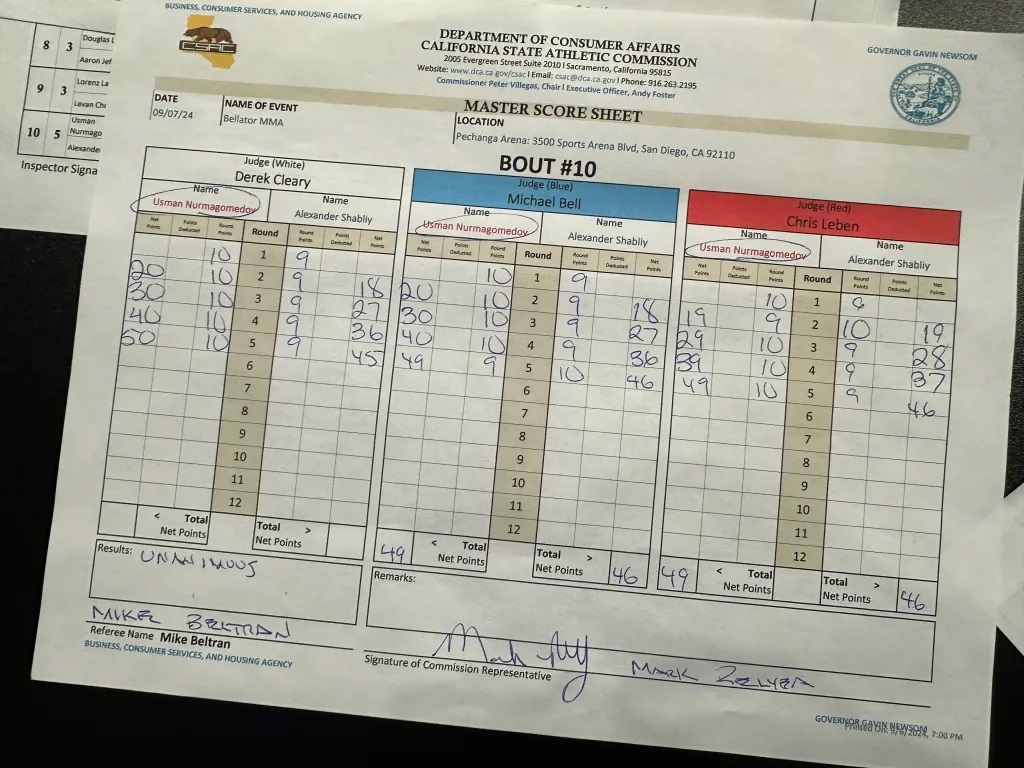 BUSINESS, CONSUMER SERVICES, AND HOUSING AGENCY
CSAC
DEPARTMENT OF CONSUMER AFFAIRS
CALIFORNIA STATE ATHLETIC COMMISSION
2005 Evergreen Street Suite 2010 I Sacramento, California 95815
Website: www.dca.ca.gov/csac I Email: csac@dca.ca.gov I Phone: 916.263.2195
Commissioner Peter Villegas, Chair I Executive Officer, Andy Foster
GOVERNOR GAVIN NEWSOM
8 3 Douglas
Aaron Jef
9 3 Lorenz La
Levan Cho
10 5 Usman
Nurmago
Alexande
Inspector Signa
MASTER SCORE SHEET
DATE
09/07/24
NAME OF EVENT
Bellator MMA
LOCATION
Pechanga Arena: 3500 Sports Arena Blvd, San Diego, CA 92110
BOUT #10
Judge (White)
Derek Cleary
Name Name
Usman Nurmagomedov Alexander Shabliy
Net Points Points Deducted Round Points Round Round Points Points Deducted Net Points
10 1 9
20 10 2 9 18
30 10 3 9 27
40 10 4 9 36
50 10 5 9 45
6
7
8
9
10
11
12
< Total Net Points Total > Net Points
Judge (Blue)
Michael Bell
Name Name
Usman Nurmagomedov Alexander Shabliy
Net Points Points Deducted Round Points Round Round Points Points Deducted Net Points
10 1 9
20 10 2 9 18
30 10 3 9 27
40 10 4 9 36
49 9 5 10 46
6
7
8
9
10
11
12
49 < Total Net Points Total > Net Points 46
Judge (Red)
Chris Leben
Name Name
Usman Nurmagomedov Alexander Shabliy
Net Points Points Deducted Round Points Round Round Points Points Deducted Net Points
10 1 9
19 9 2 10 19
29 10 3 9 28
39 10 4 9 37
49 10 5 9 46
6
7
8
9
10
11
12
49 < Total Net Points Total > Net Points 46
Results: UNANIMOUS
Remarks:
MIKE BELTRAN
Referee Name Mike Beltran
BUSINESS, CONSUMER SERVICES, AND HOUSING AGENCY
MARK RELYEA
Signature of Commission Representative
GOVERNOR GAVIN NEWSOM
Printed On: 9/6/2024, 7:00 PM